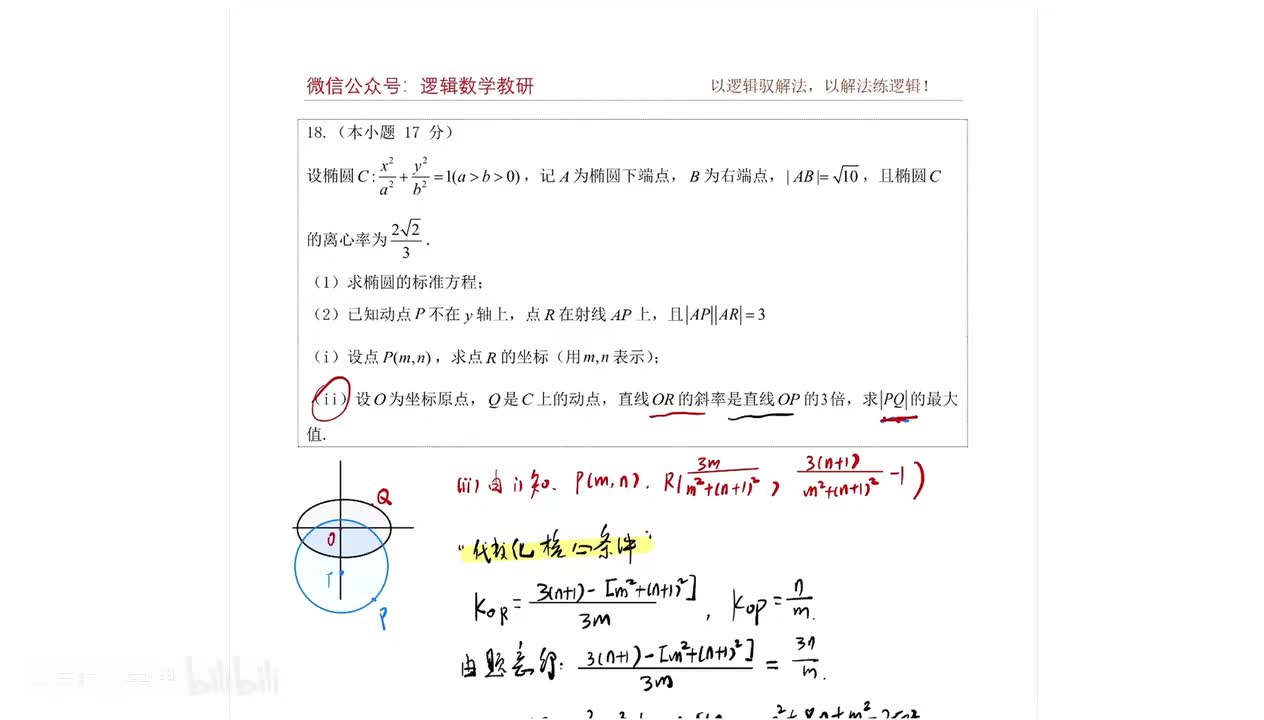 微信公众号：逻辑数学教研
以逻辑驭解法，以解法练逻辑！
18.（本小题 17 分）
设椭圆 C: x²/a² + y²/b² = 1(a > b > 0)，记 A 为椭圆下端点，B 为右端点，|AB|=√10，且椭圆 C
的离心率为 2√2/3.
（1）求椭圆的标准方程；
（2）已知动点 P 不在 y 轴上，点 R 在射线 AP 上，且|AP||AR|=3
（i）设点 P(m,n)，求点 R 的坐标（用 m,n 表示）；
（ii）设 O 为坐标原点，Q 是 C 上的动点，直线 OR 的斜率是直线 OP 的 3 倍，求|PQ|的最大
值.
(ii) 由 i) 知. P(m,n). R(3m/(m²+(n+1)²), 3(n+1)/(m²+(n+1)²) -1)
Q
O
T
P
"代数化核心条件"
K_OR = (3(n+1) - [m²+(n+1)²])/3m, K_OP = n/m.
由题意得: (3(n+1) - [m²+(n+1)²])/3m = 3n/m.
bilibili